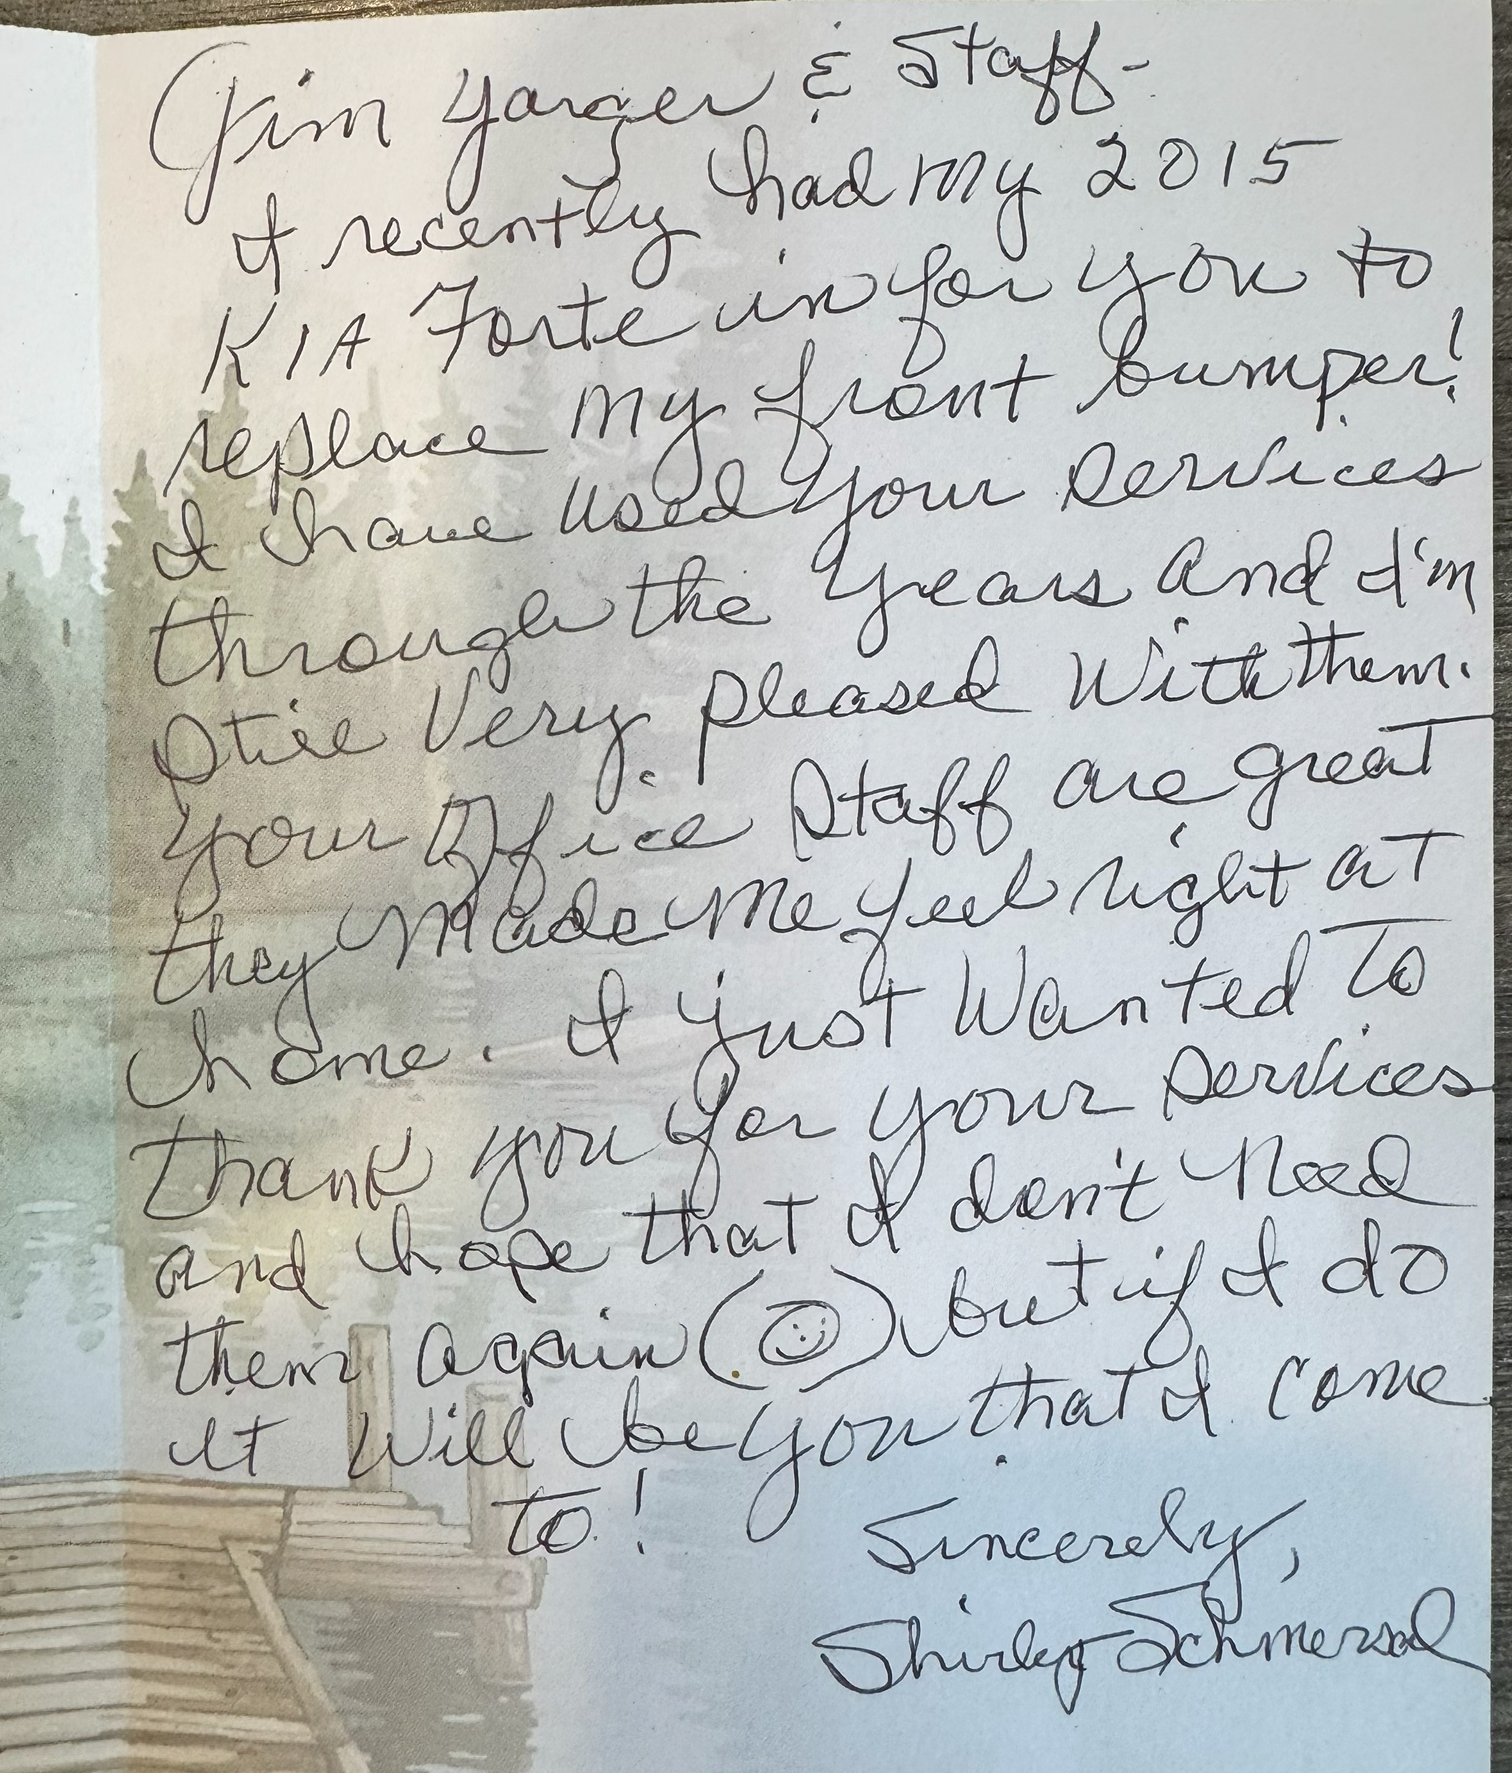 Jim Yarger & Staff-
I recently had my 2015
KIA Forte in for you to
replace my front bumper!
I have used your services
through the years and I'm
still very pleased with them.
Your Office Staff are great
they made me feel right at
home. I just wanted to
thank you for your services
and hope that I don't need
them again (☺) but if I do
it will be you that I come
to!
Sincerely,
Shirley Schmersal